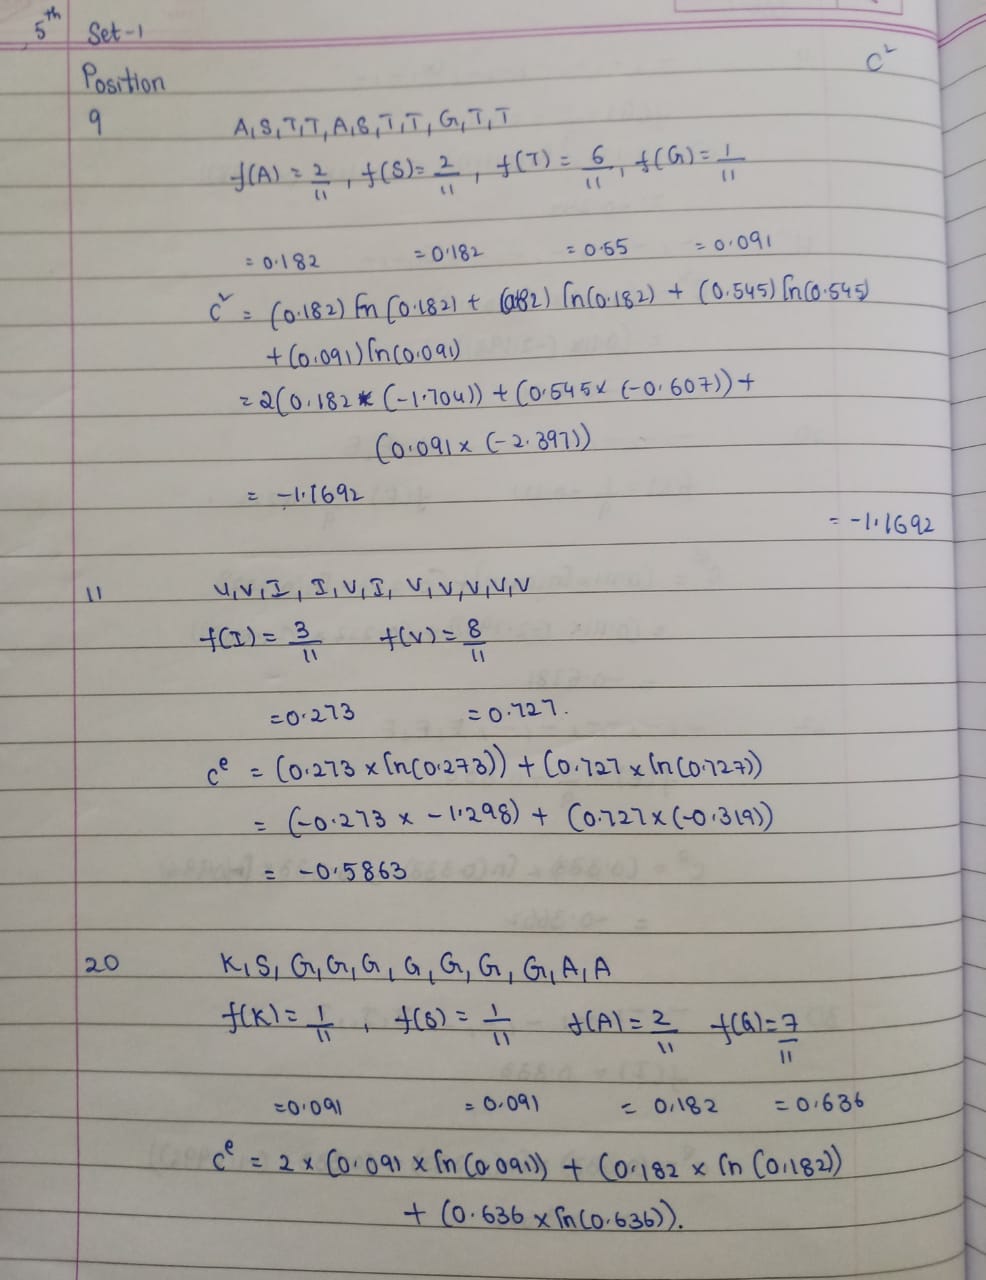 5th Set-1
Position
C²
9 A,S,T,T,A,S,T,T,G,T,T
f(A) = 2/11, f(S) = 2/11, f(T) = 6/11, f(G) = 1/11
= 0.182 = 0.182 = 0.55 = 0.091
C² = (0.182) ln (0.182) + (0.182) ln(0.182) + (0.545) ln(0.545)
+ (0.091) ln(0.091)
= 2(0.182 * (-1.704)) + (0.545 x (-0.607)) +
(0.091 x (-2.397))
= -1.1692
= -1.1692
11 V,V,I,I,V,I,V,V,V,V,V
f(I) = 3/11 f(V) = 8/11
= 0.273 = 0.727.
Ce = (0.273 x ln(0.273)) + (0.727 x ln(0.727))
= (-0.273 x -1.298) + (0.727 x (-0.319))
= -0.5863
20 K,S,G,G,G,G,G,G,G,A,A
f(K) = 1/11, f(S) = 1/11 f(A) = 2/11 f(G) = 7/11
= 0.091 = 0.091 = 0.182 = 0.636
Ce = 2 x (0.091 x ln (0.091)) + (0.182 x ln (0.182))
+ (0.636 x ln(0.636)).